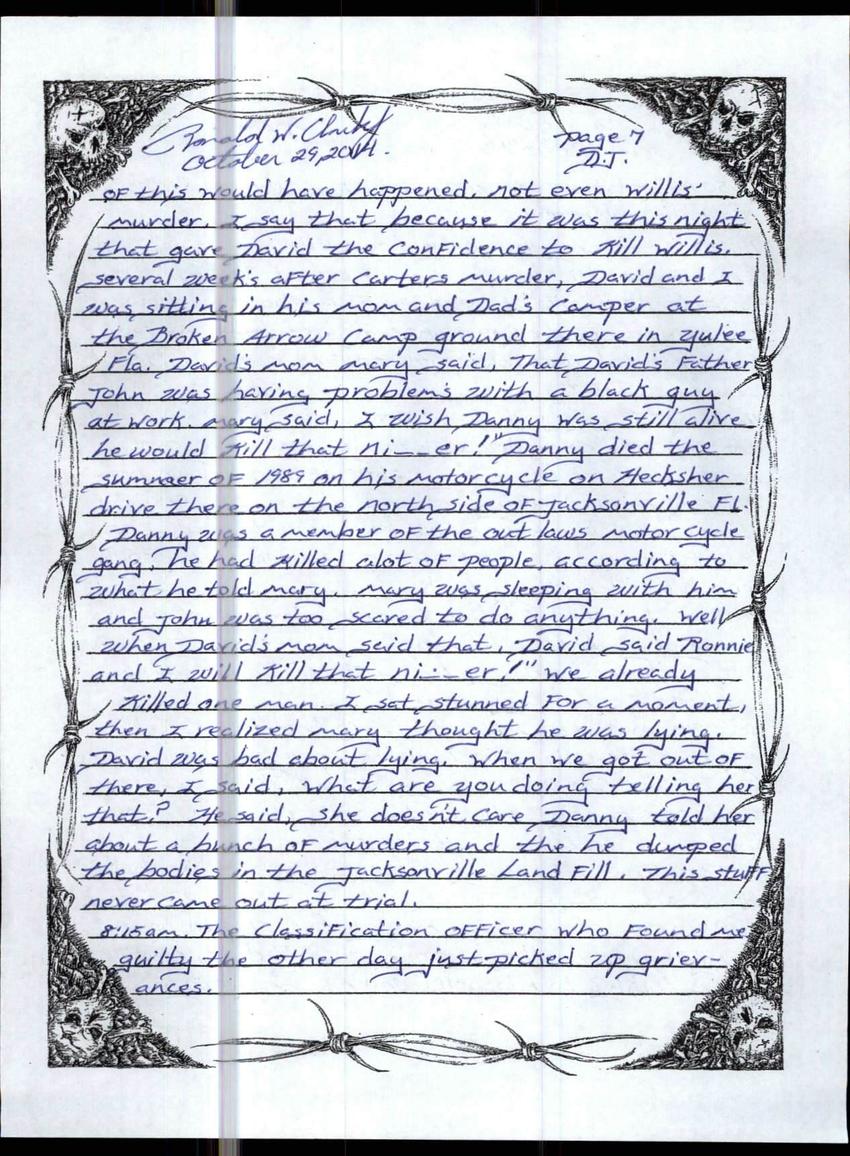 Ronald W. Clark Jr
page 7
October 29, 2014.
D.J.
of this would have happened, not even Willis'
murder. I say that because it was this night
that gave David the confidence to kill Willis.
several week's after Carters murder, David and I
was sitting in his mom and Dad's camper at
the Broken Arrow Camp ground there in yulee
Fla. David's mom mary said, That David's Father
John was having problem's with a black guy
at work. mary said, I wish Danny was still alive
he would kill that ni__er!" Danny died the
summer of 1989 on his motorcycle on Hecksher
drive there on the north side of Jacksonville Fl.
Danny was a member of the out laws motor cycle
gang, he had killed alot of people, according to
what he told mary. mary was sleeping with him
and John was too scared to do anything. Well
when David's mom said that, David said Ronnie
and I will kill that ni__er!" we already
killed one man. I sat stunned for a moment,
then I realized mary thought he was lying.
David was bad about lying. When we got out of
there, I said, What are you doing telling her
that? He said, she doesn't care Danny told her
about a bunch of murders and the he dumped
the bodies in the Jacksonville Land Fill. This stuff
never came out at trial.
8:15am. The Classification officer who found me
guilty the other day just picked up griev-
ances.